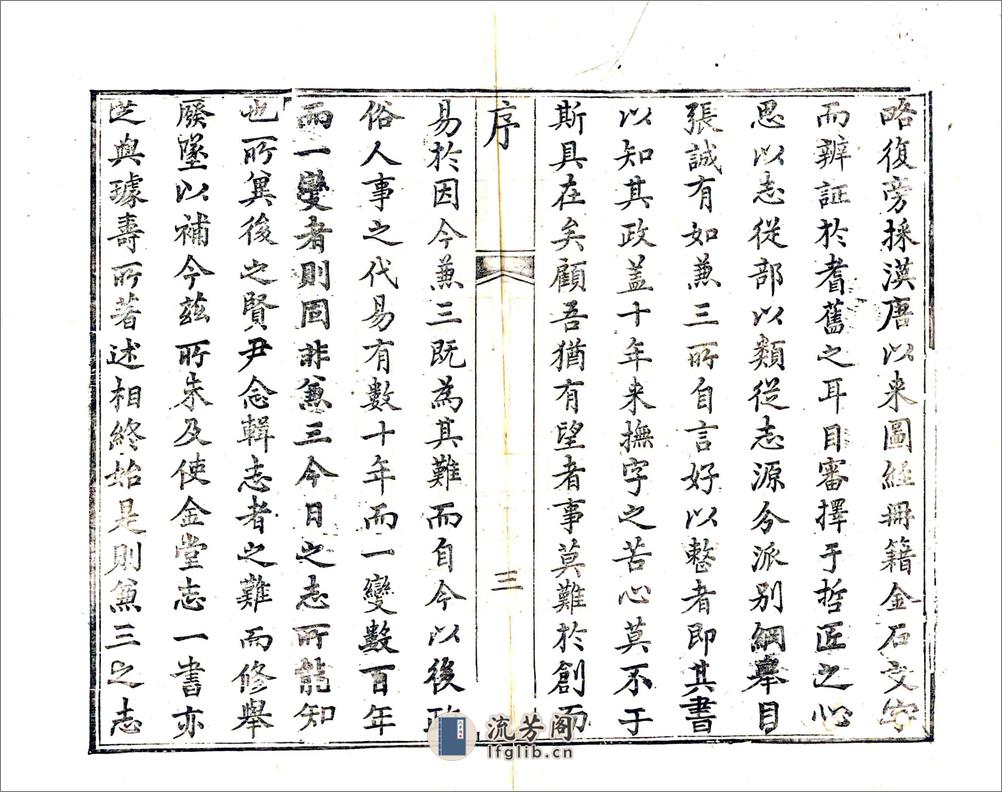 略復旁採漢唐以来圖經冊籍金石文字
而辨証於耆舊之耳目審擇于哲匠之心
思以志従部以類従志源分派别綱舉目
張誠有如兼三所自言好以整者即其書
以知其政盖十年来撫字之苦心莫不于
斯具在矣顧吾猶有望者事莫難於創而
序
三
易於因今兼三既為其難而自今以後政
俗人事之代易有數十年而一變數百年
而一變者則固非兼三今日之志所能知
也所兾後之賢尹念輯志者之難而修舉
廢墜以補今茲所未及使金堂志一書亦
與璩壽所著述相終始是則兼三之志
流芳阁
lfglib.cn